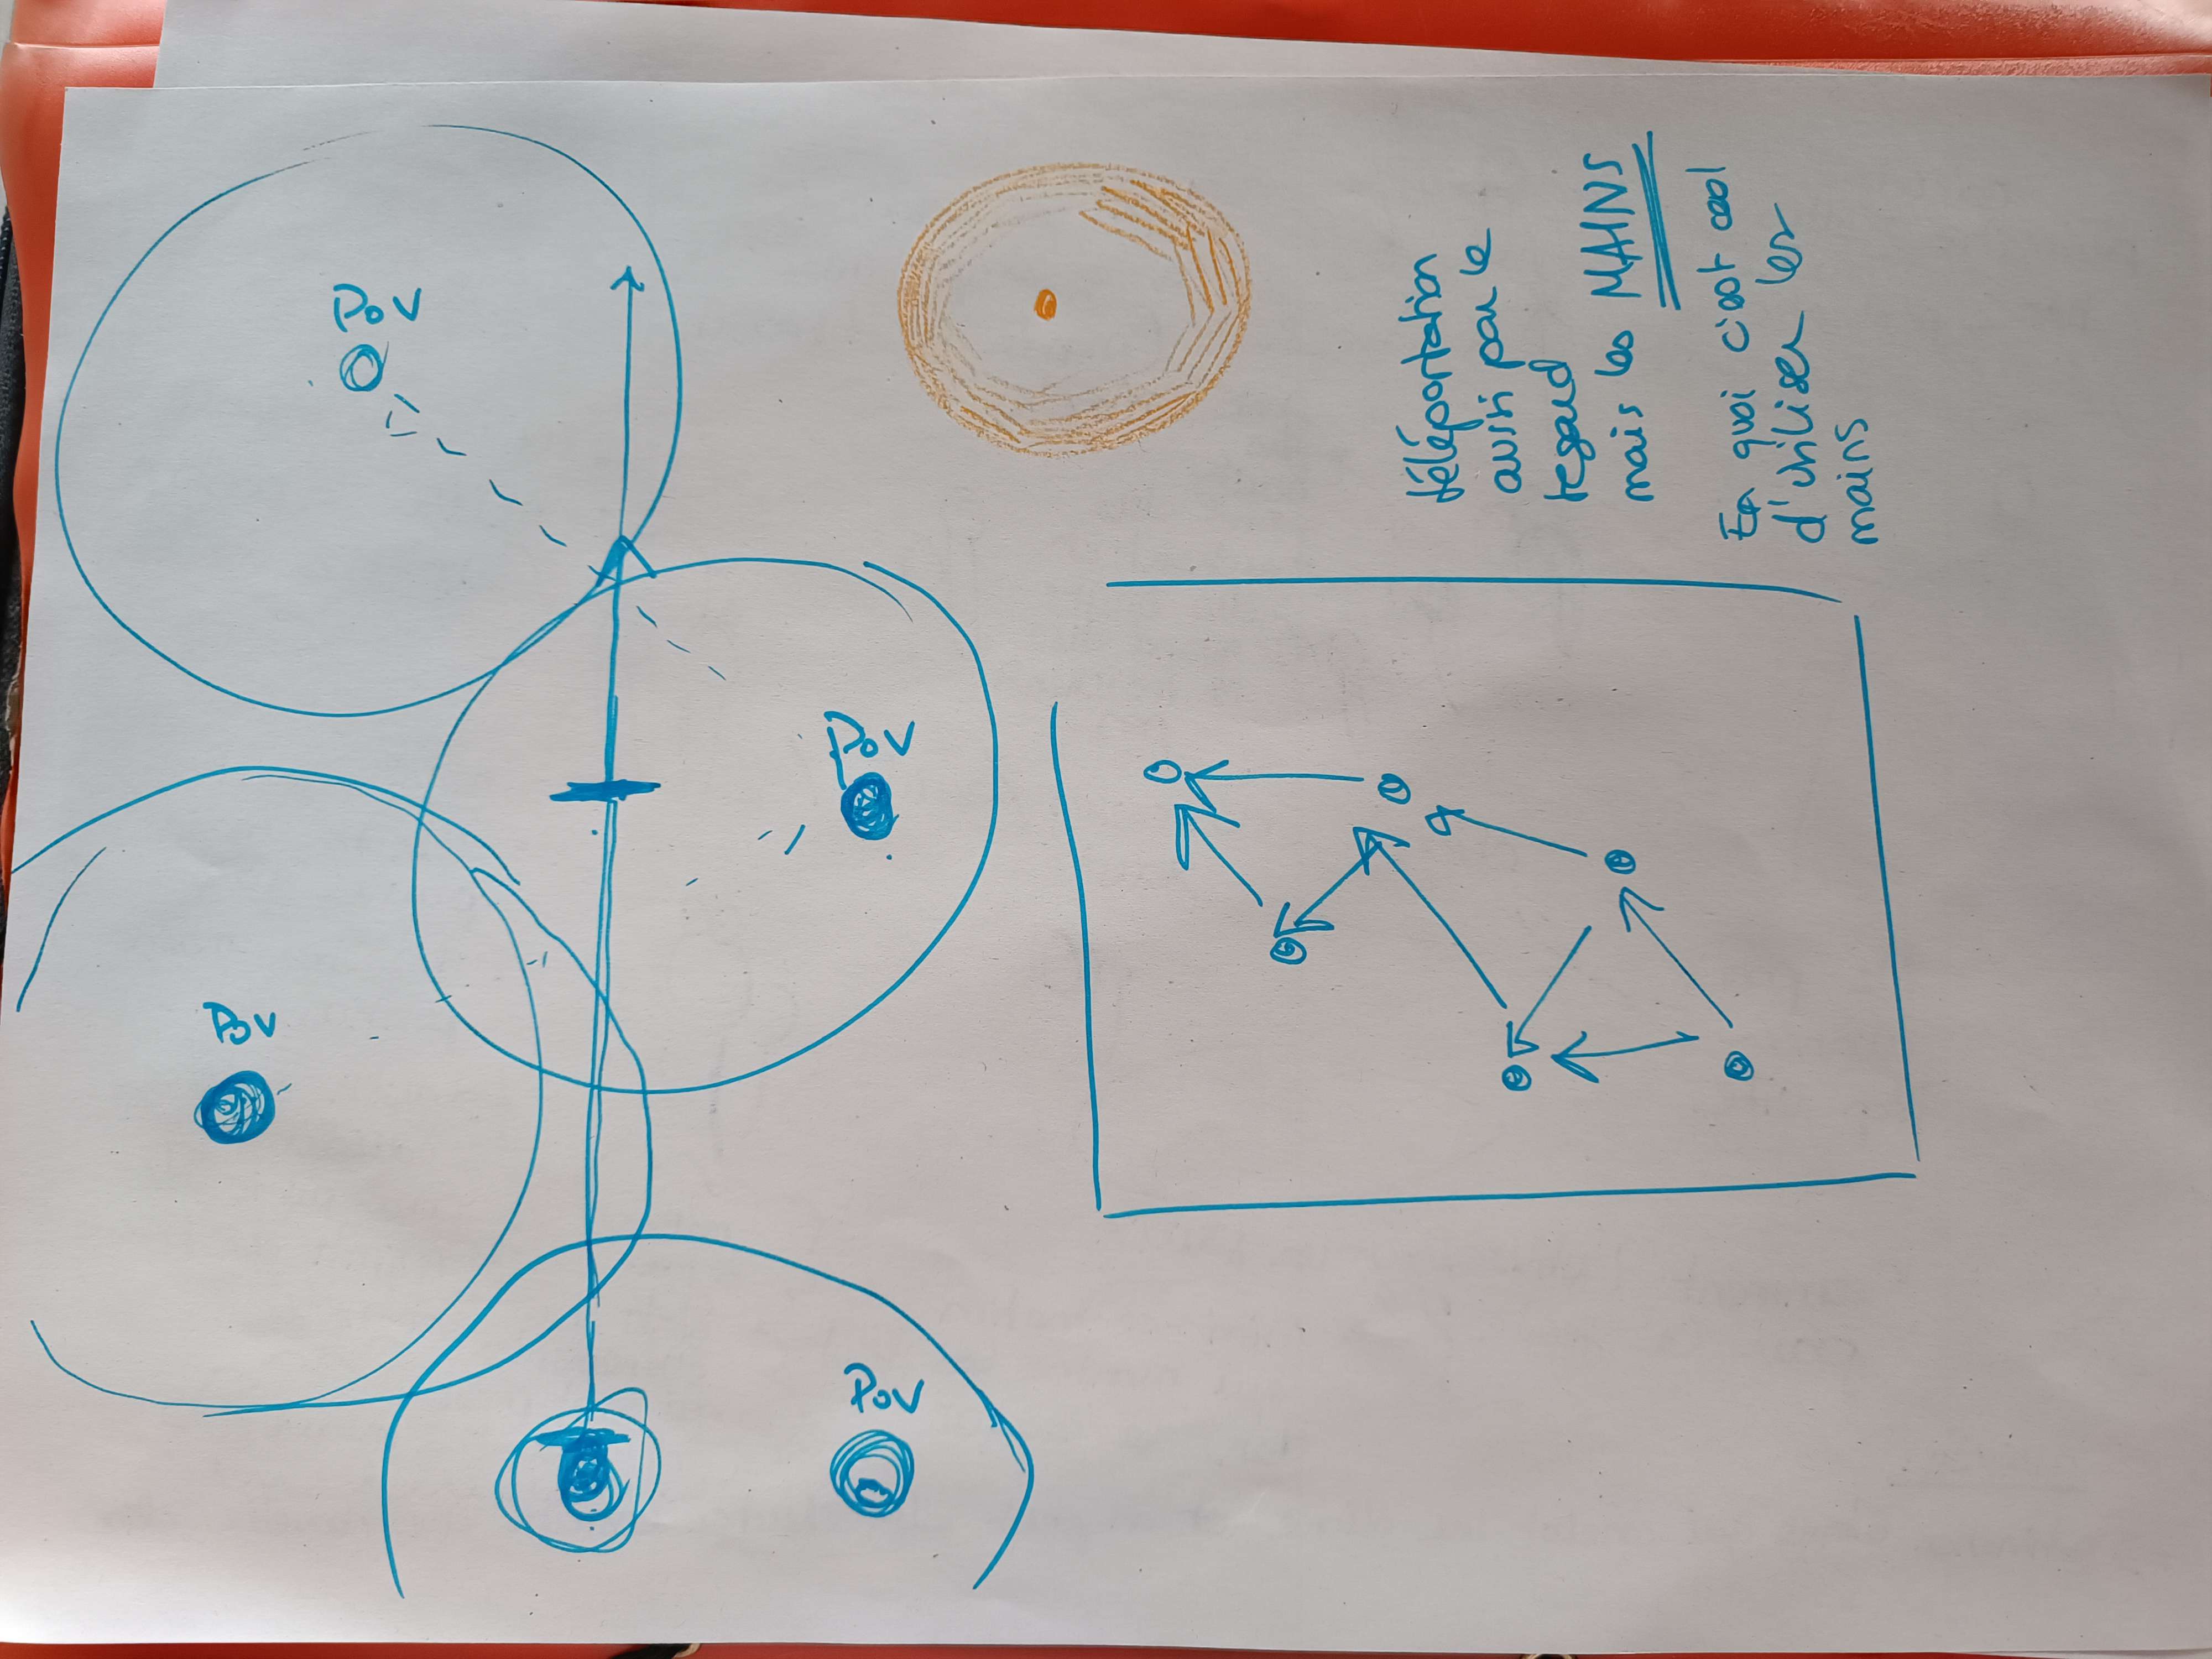 PoV
PoV
PoV
PoV
téléportation
aussi par le
regard
mais les MAINS
En quoi c'est cool
d'utiliser les
mains